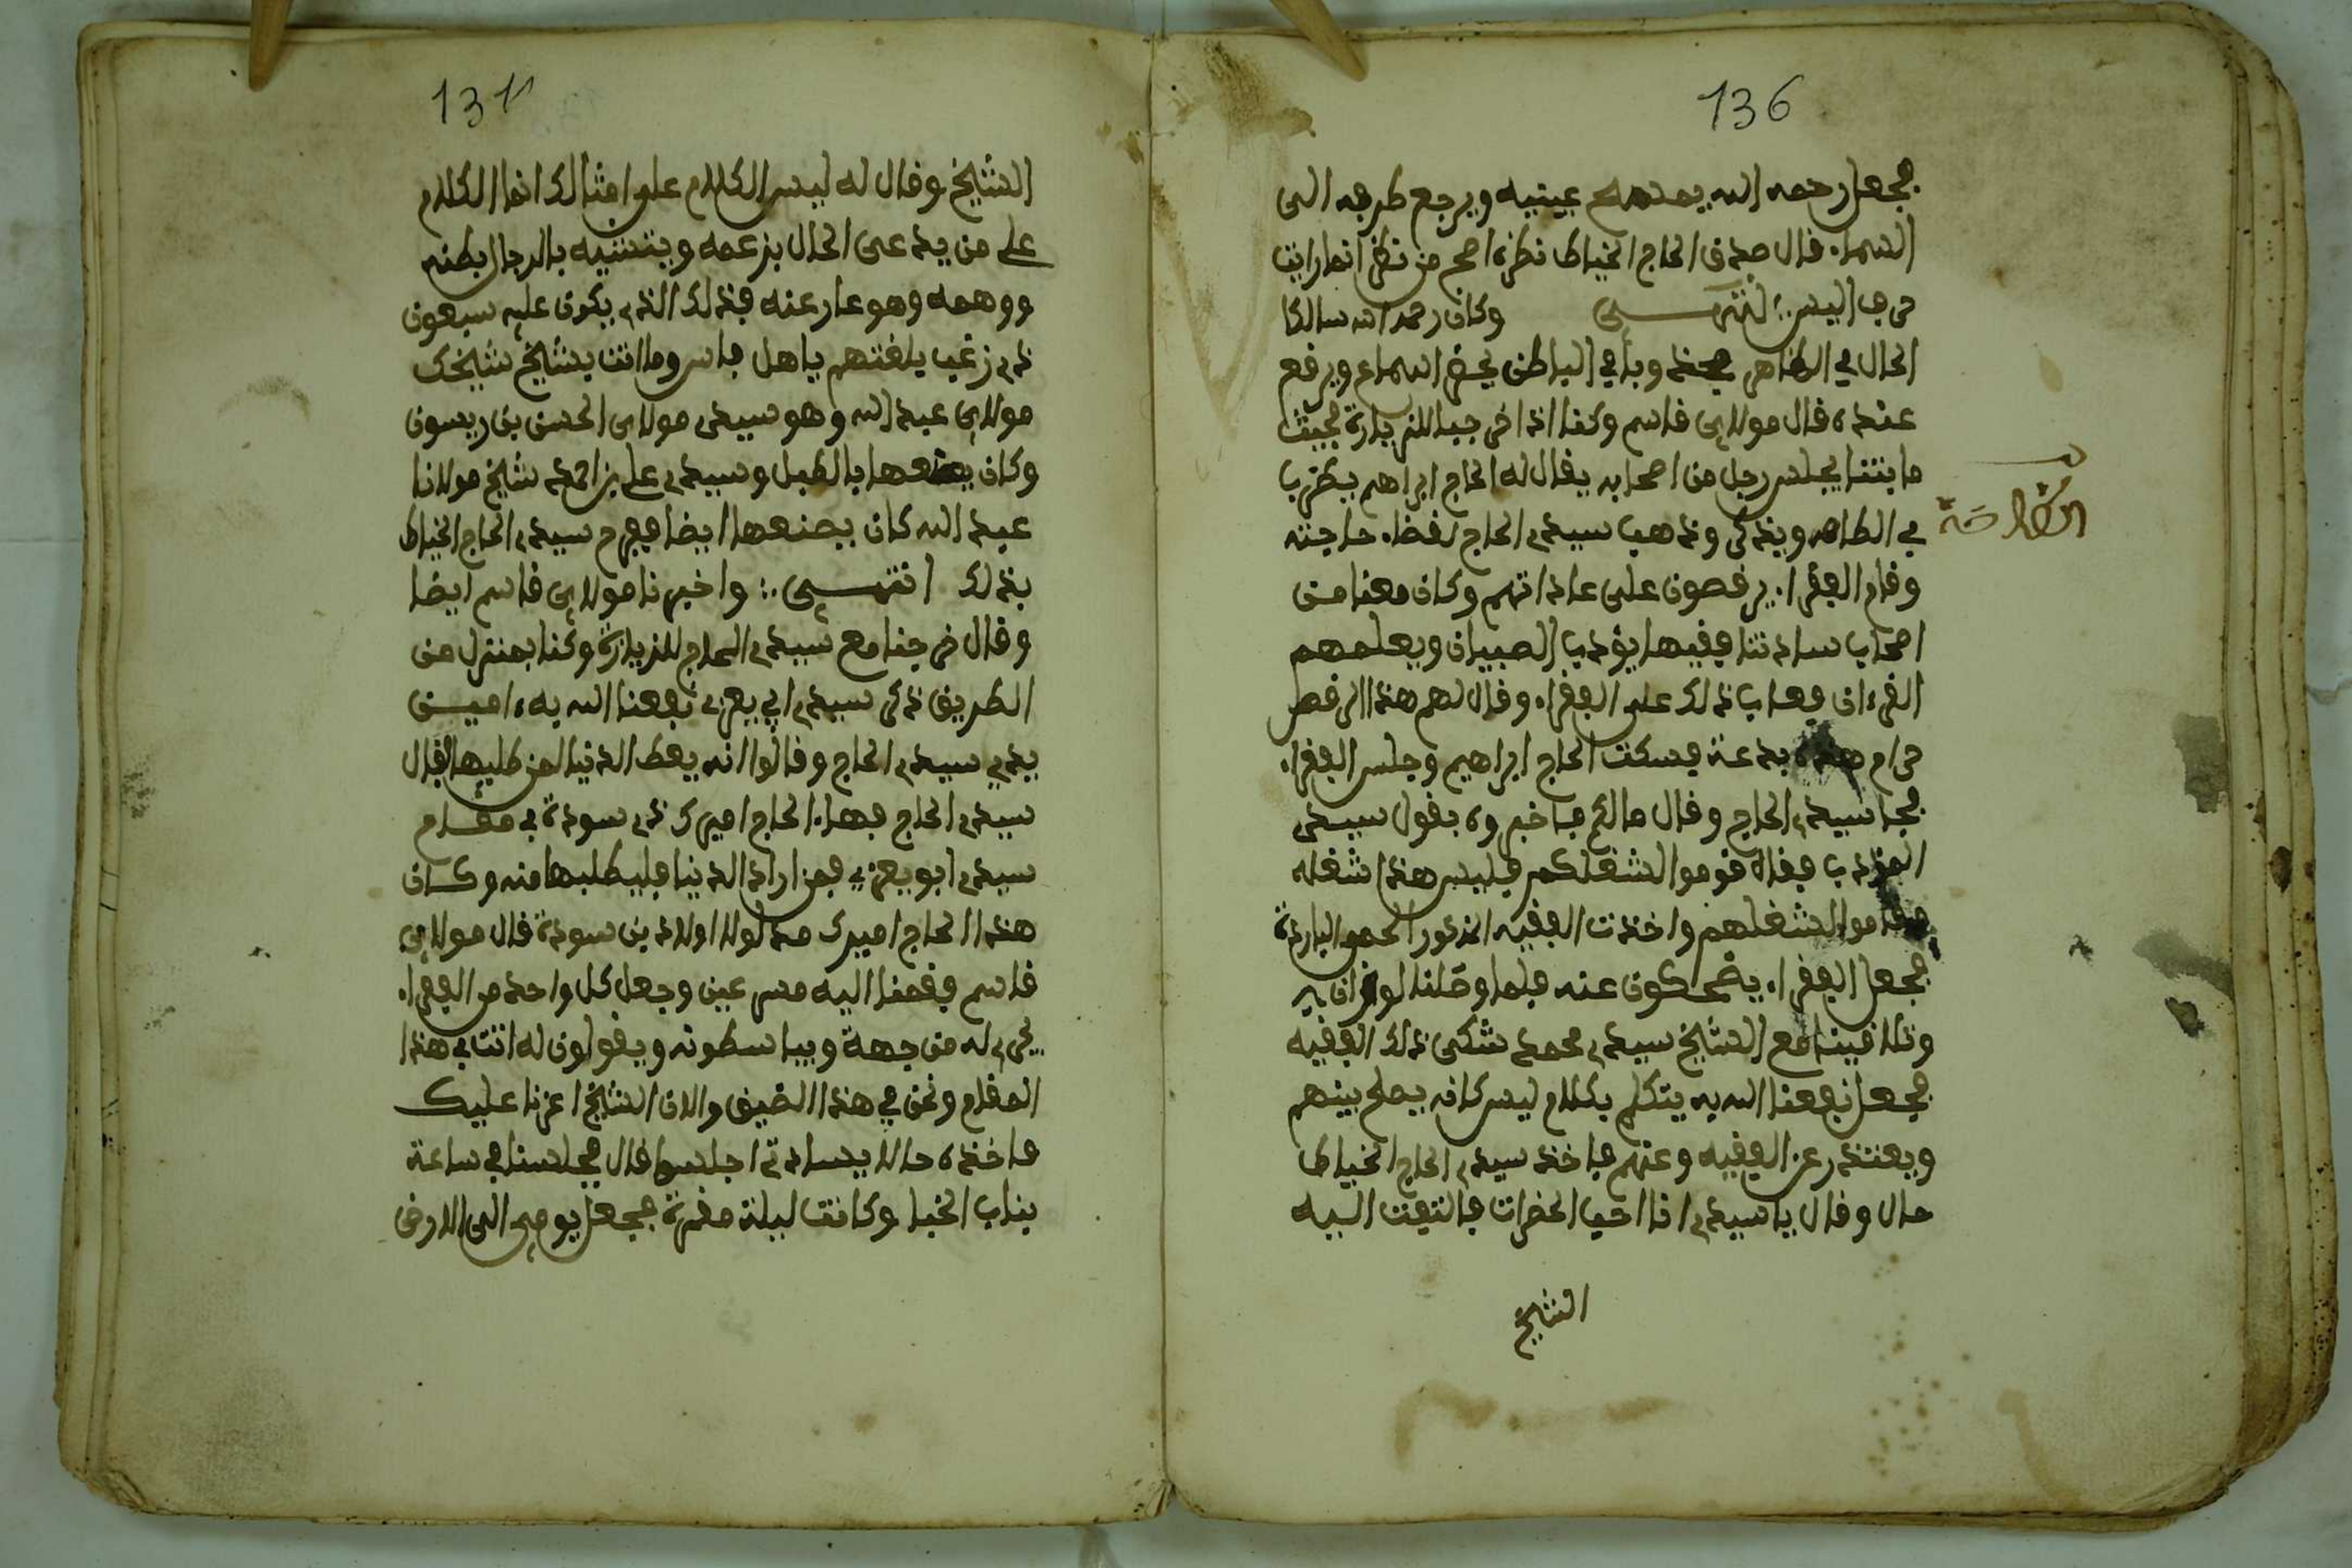 136
فجعل رحمه الله يمسح عينيه ويرجع طرفه الى
السماء قال صدق الحاج الخياط نظرة اصح من نظر انما رايت
حرف اليس انتهـــى وكان رحمه الله سالكا
الحال في الظاهر وفي الباطن يحضر السماع ويرفع
عنده قال مولاي قاسم وكنا اذا خرجنا للزيارة فحيث
ما بتنا يجلس رجل من اصحابه يقال له الحاج ابراهيم يضرب
في الطاسه ويذكر وذهب سيدي الحاج لقضاء حاجته
وقام الفقراء يرقصون على عاداتهم وكان معنا من
اصحاب ساداتنا فقيها يؤدب الصبيان ويعلمهم
القرءان فعاب ذلك على الفقراء وقال لهم هذا الرقص
حرام هذه بدعة فسكت الحاج ابراهيم وجلس الفقراء
فجا سيدي الحاج وقال مالكم فاخبروه بقول سيدي
المؤدب فقال قوموا لشغلكم فليس هذا شغله
فقاموا لشغلهم واخذت الفقيه المذكور الحمى الباردة
فجعل الفقراء يضحكون عنه فلما وصلنا لوازان
وتلاقينا مع الشيخ سيدي محمد شكى ذلك الفقيه
فجعل نفعنا الله به يتكلم بكلام ليس كانه يصلح بينهم
ويعتذر عن الفقيه وعنهم فاخذ سيدي الحاج الخياط
حال وقال يا سيدي انا احب الحضرات فالتفت اليه
الشيخ
131
الشيخ وقال له ليس الكلام على امثالك انما الكلام
على من يدعى الحال بزعمه ويتشبه بالرجال بظنه
ووهمه وهو عار عنه فذلك الذي يكون عليه سبعون
ذي زغب يلغتهم ياهل فاس وما انت بشيخ شيخك
مولاي عبد الله وهو سيدي مولاي الحسن بن ريسون
وكان يصنعها بالطبل وسيدي علي بن احمد شيخ مولانا
عبد الله كان يصنعها ايضا ففرح سيدي الحاج الخياط
بذلك انتهـــى واخبرنا مولاي قاسم ايضا
وقال خرجنا مع سيدي الحاج للزيارة وكنا بمنزل من
الطريق ذكر سيدي ابي يعزى نفعنا الله به ءاميـــن
بيدي سيدي الحاج وقالوا انه يعط الدنيا لمن طلبها فقال
سيدي الحاج فهاء الحاج اميرك ذي سودة في مقام
سيدي ابو يعزى فمن اراد الدنيا فليطلبها منه وكان
هذا الحاج اميرك اولاد بن سودة قال مولاي
قاسم فقمنا اليه مسرعين وجعل كل واحد من الفقراء
يجرى له من جهة ويباسطونه ويقولون له انت في هذا
المقام ونحن في هذا الضيق والان الشيخ اعزنا عليك
فاخذه حال يسادتي اجلسوا قال فجلسنا في ساعة
بباب الخبا وكانت ليلة مقمرة فجعل يومي الى الارض